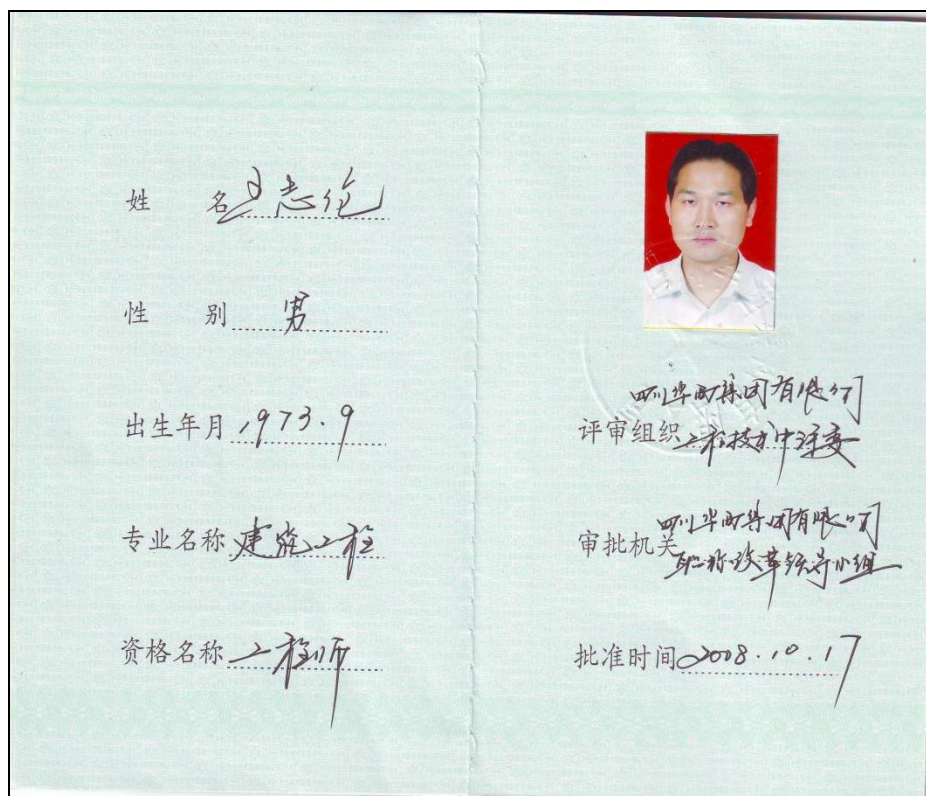 姓 名 王志伦
性 别 男
出生年月 1973.9
专业名称 建筑工程
资格名称 工程师
四川华西集团有限公司
评审组织 工程技术中评委
四川华西集团有限公司
审批机关
职称改革领导小组
批准时间 2008.10.17